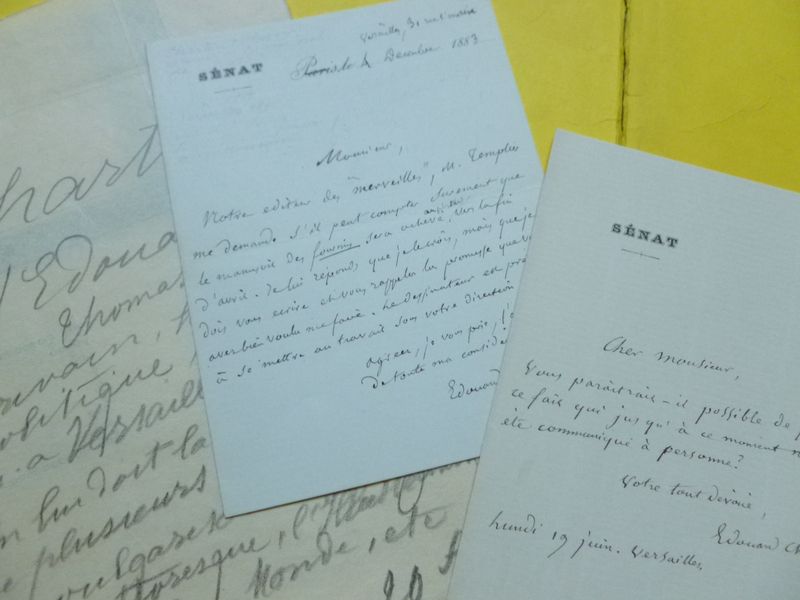 SÉNAT
Versailles, 31 rue St
Paris, le 4 Decembre 1883
Monsieur,
Notre editeur des "merveilles", M. Templier
me demande s'il peut compter surement que
le manuscrit des fourmis sera achevé vers la fin
d'avril. Je lui réponds que je le crois, mais que je
dois vous ecrire et vous rappeler la promesse que v
avez bien voulu me faire. Le dessinateur est prê
à se mettre au travail sous votre direction
agréer, je vous prie, l'
de toute ma considé
Edouard
SÉNAT
Cher monsieur,
Vous paraîtrait-il possible de p
ce fait qui jusqu'à ce moment n
été communiqué à personne?
Votre tout dévoué,
Edouard Ch
lundi 19 juin. Versailles,
hart
Edoua
Thomas
rivain,
olitique
. à Versaille
n lui doit la
e plusieurs
vulgaris
toresque, l'
Monde, etc
20